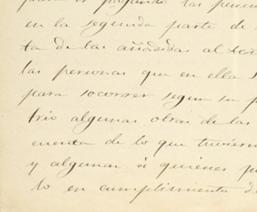 para el pago de las pensi
en la segunda parte de
ta de las añadidas al Xer
las personas que en ella
para socorrer segun su p
trio algunas obras de las
cuenta de lo que tuvieron
y algunas á quienes pu
to en cumplimiento de